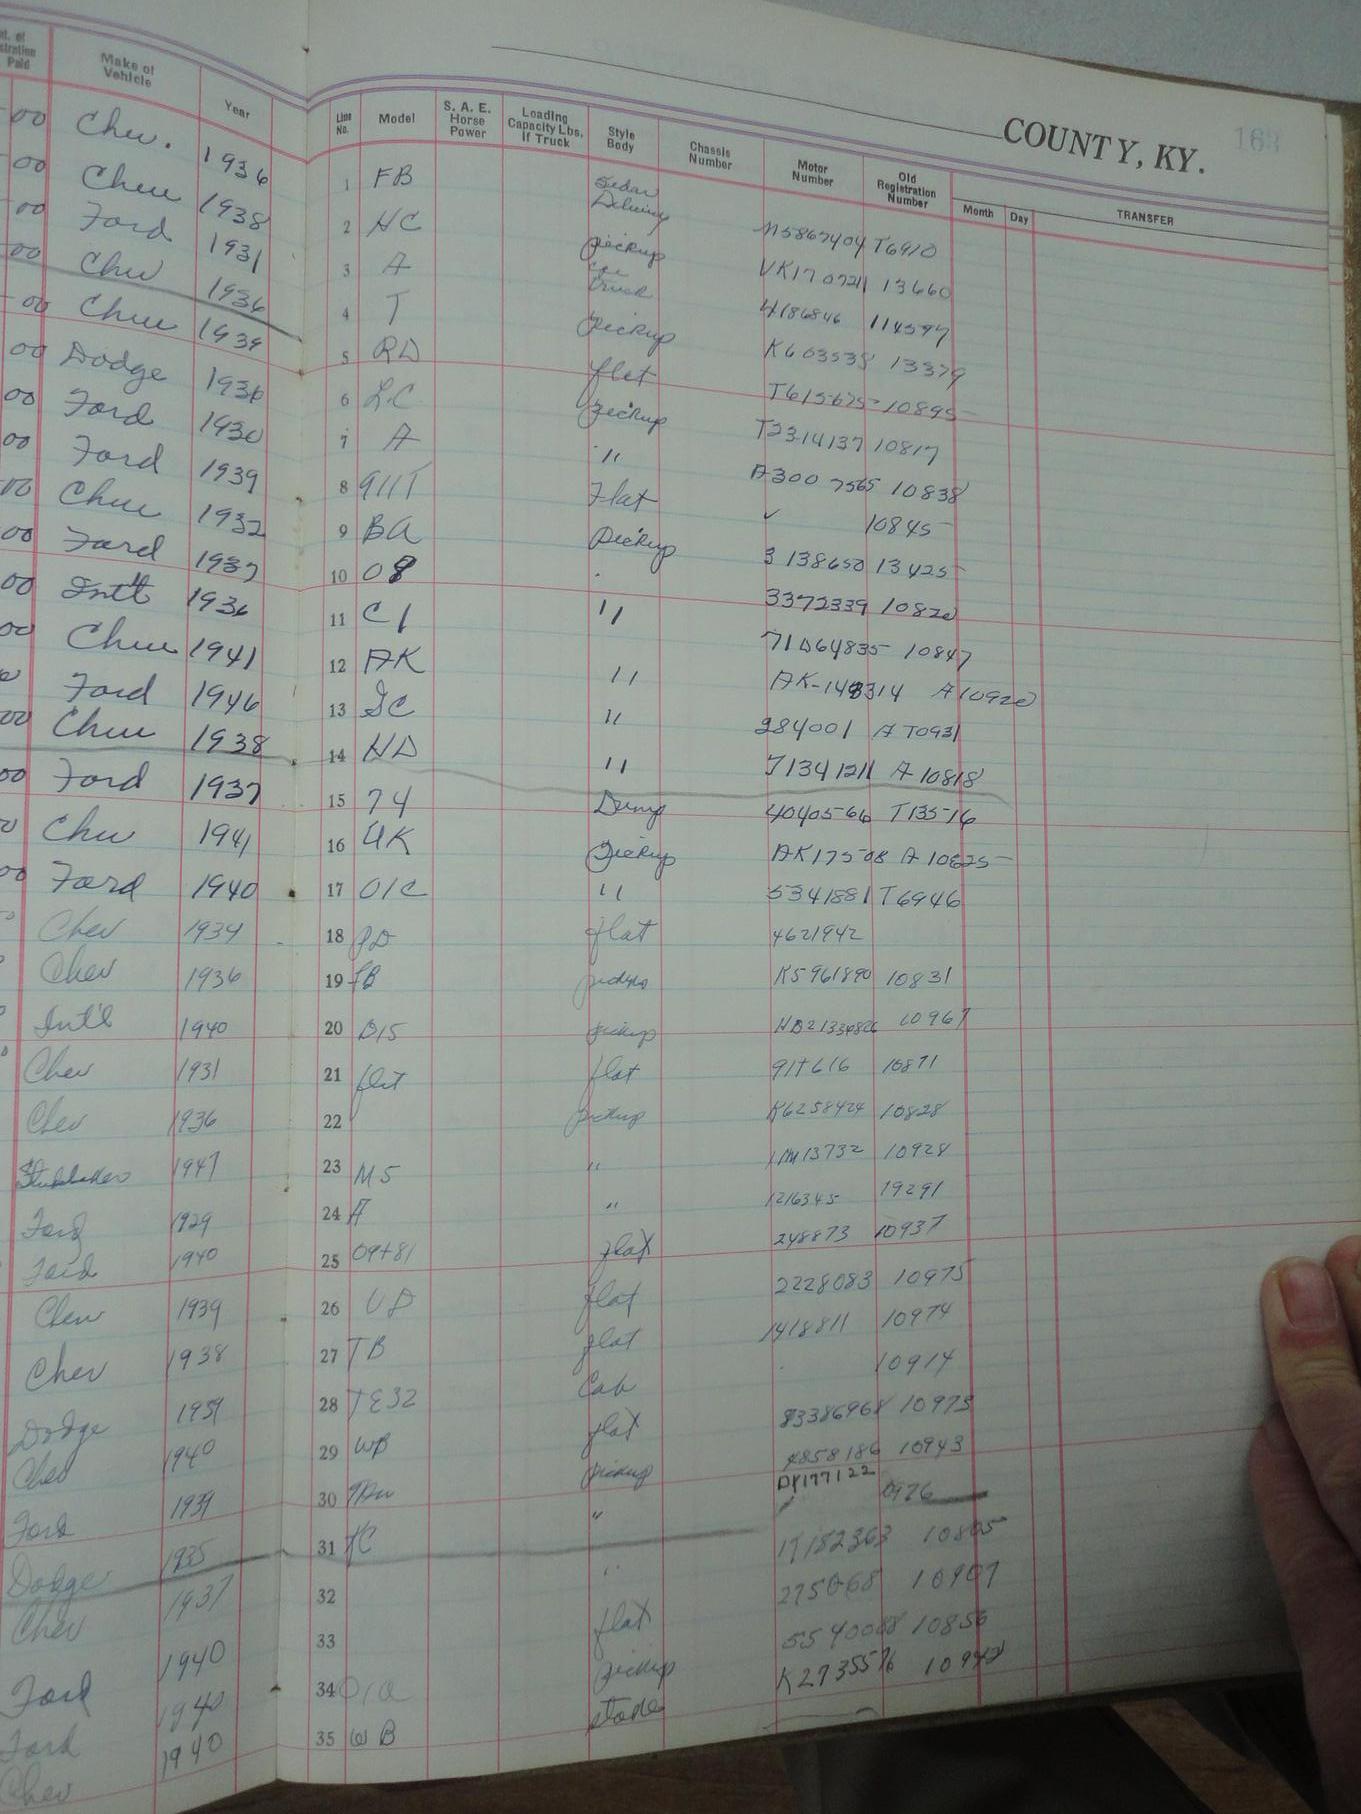 COUNTY, KY.
163
Make of Vehicle Year
Line No. Model S. A. E. Horse Power Loading Capacity Lbs. If Truck Style Body Chassis Number Motor Number Old Registration Number Month Day TRANSFER
00 Chev. 1936 1 FB Sedan Delivery M5867404 T6910
00 Chev 1938 2 HC pickup VK170721 13660
00 Ford 1931 3 A truck 4186846 114597
00 Chev 1936 4 T pickup K603538 13379
00 Chev 1939 5 RD flat T615675 10895
00 Dodge 1936 6 LC pickup T2314137 10817
00 Ford 1930 7 A " A3007565 10838
00 Ford 1939 8 911T Flat 10845
00 Chev 1932 9 BA pickup 3138650 13425
00 Ford 1937 10 08 3372339 10820
00 Int'l 1936 11 C1 " 71D64835 10847
00 Chev 1941 12 AK " AK-148314 A10920
Ford 1946 13 GC " 284001 A T0931
00 Chev 1938 14 HD " 71341211 A 10818
00 Ford 1937 15 74 Dump 4040566 T13516
Chev 1941 16 UK pickup AK17508 A 10625
00 Ford 1940 17 01C " 5341881 T6946
Chev 1934 18 PD flat 4621942
Chev 1936 19 FB pickup K5961890 10831
Int'l 1940 20 D15 pickup 10967
Chev 1931 21 flat flat 917616 10871
Chev 1936 22 pickup K6258424 10828
Studebaker 1947 23 M5 " 1M13732 10928
Ford 1929 24 A " 1216345 19291
Ford 1940 25 09T81 flat 248873 10937
Chev 1939 26 UD flat 2228083 10975
Chev 1938 27 TB flat 1418811 10974
Dodge 1939 28 TE32 Cab 10914
Chev 1940 29 WB flat 83386968 10973
Ford 1939 30 pickup 4858186 10943
DP177122
Dodge 1935 31 KC " 0926
Chev 1937 32 17182363 10805
Ford 1940 33 flat 275068 10907
Ford 1940 34 01C pickup 5540088 10856
Chev 1940 35 WB stake K2735576 10942